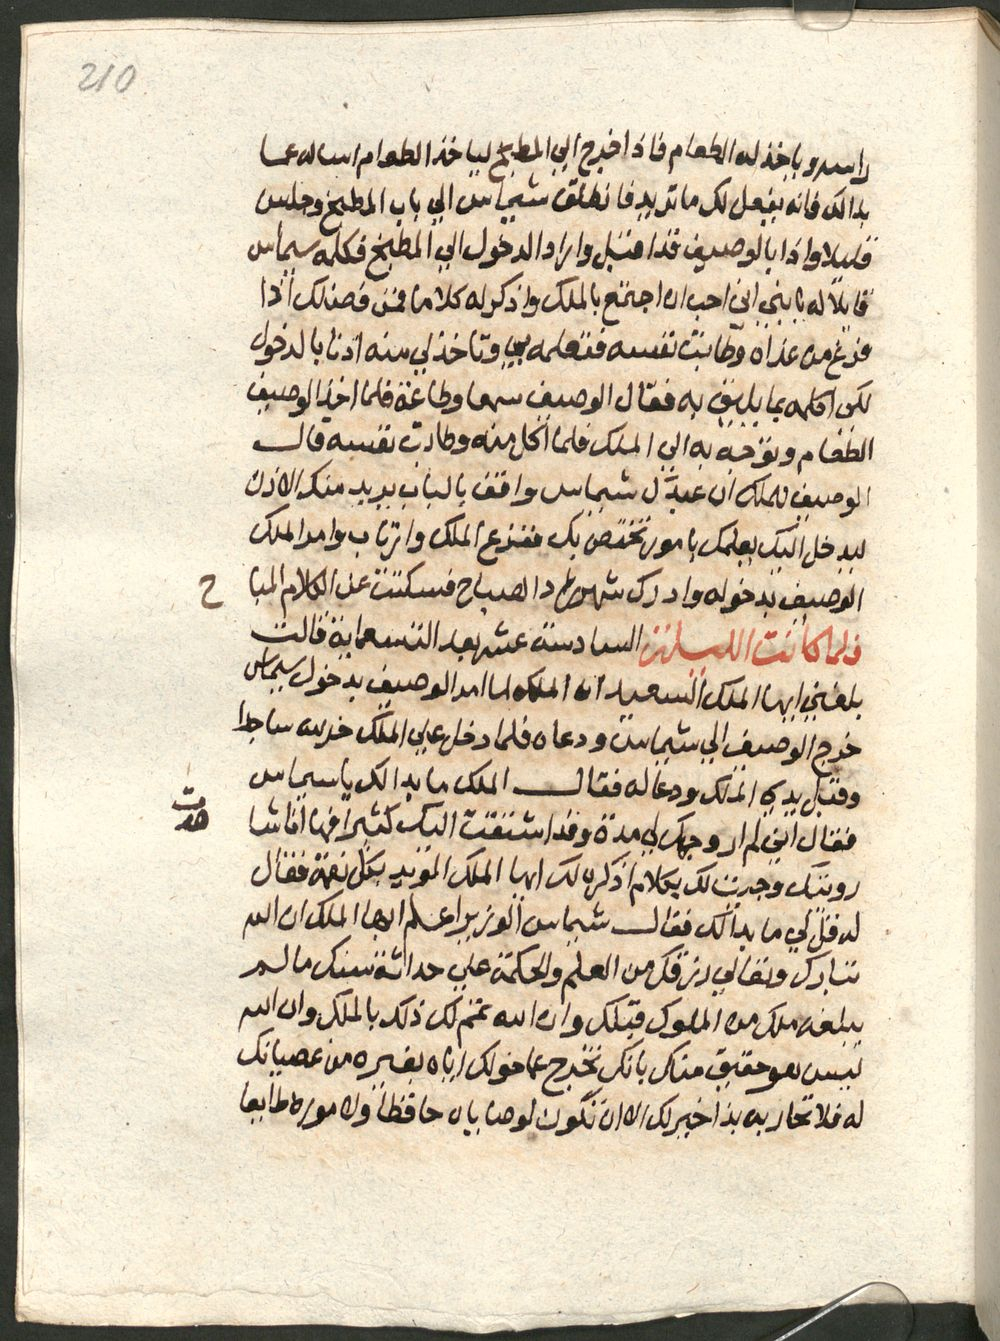 210
راسه وياخذ له الطعام فاذا خرج الي المطبخ لياخذ الطعام اساله عما
بدالك فانه يفعل لك ما تريد فانطلق شيماس الي باب المطبخ وجلس
قليلا واذا بالوصيف قد اقبل واراد الدخول الي المطبخ فكلمه شيماس
قايلا له يا بني اني احب ان اجتمع بالملك واذكر له كلاما فمن فضلك اذا
فرغ من غداه وطابت نفسه فتعلمه بي وتاخذ لي منه اذنا بالدخول
لكي اكلمه بما يليق به فقال الوصيف سمعا وطاعة فلما اخذ الوصيف
الطعام وتوجه به الي الملك فلما اكل منه وطابت نفسه قال
الوصيف للملك ان عبدك شيماس واقف بالباب يريد منك الاذن
ليدخل اليك يعلمك بامور تختص بك ففزع الملك وارتاب وامر الملك
الوصيف بدخوله وادرك شهرزاد الصباح فسكتت عن الكلام المبا
ح
فلما كانت الليلة السادسة عشر بعد التسعماية قالت
بلغني ايها الملك السعيد ان الملك لما امر الوصيف بدخول شيماس
خرج الوصيف الي شيماس ودعاه فلما دخل علي الملك خر له ساجدا
وقبل يدي الملك ودعا له فقال الملك ما بدالك يا شيماس
فقال اني لم ار وجهك لي مدة وقد اشتقت اليك كثيرا فها انا شا
هدت
رويتك وجيت لك بكلام اذكره لك ايها الملك المويد بكل نعمة فقال
له قل لي ما بدالك فقال شيماس الوزير اعلم ايها الملك ان الله
تبارك وتعالي رزقك من العلم والحكمة علي حداثة سنك ما لم
يبلغه ملك من الملوك قبلك وان الله تمم لك ذلك بالملك وان الله
ليس هو حقيق منك بانك تخرج عما خولك اياه بغيره من عصيانك
له فلا تحاربه بذاخيرلك الا ان تكون لوصاياه حافظا ولاموره طايعا